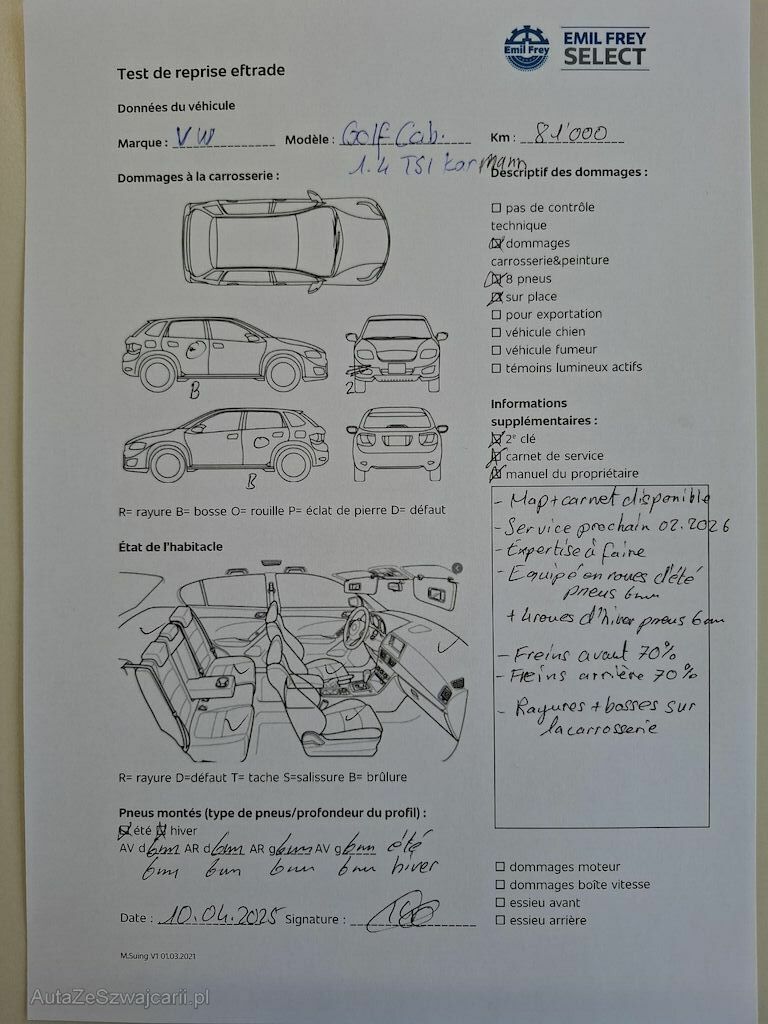 Emil Frey
EMIL FREY
SELECT
Test de reprise eftrade
Données du véhicule
Marque : VW Modèle : Golf Cab. Km : 81'000
1.4 TSI Karmann
Dommages à la carrosserie :
B
2
B
R= rayure B= bosse O= rouille P= éclat de pierre D= défaut
État de l'habitacle
R= rayure D=défaut T= tache S=salissure B= brûlure
Pneus montés (type de pneus/profondeur du profil) :
été hiver
AV d 6mm AR d 6mm AR g 6mm AV g 6mm été
6mm 6mm 6mm 6mm hiver
Date : 10.04.2025 Signature :
M.Suing V1 01.03.2021
Descriptif des dommages :
pas de contrôle
technique
dommages
carrosserie&peinture
8 pneus
sur place
pour exportation
véhicule chien
véhicule fumeur
témoins lumineux actifs
Informations
supplémentaires :
2e clé
carnet de service
manuel du propriétaire
- Map+carnet disponible
- Service prochain 02.2026
- Expertise à faire
- Equipé en roues d'été
pneus 6mm
+ 4 roues d'hiver pneus 6mm
- Freins avant 70%
- Freins arrière 70%
- Rayures + bosses sur
la carrosserie
dommages moteur
dommages boîte vitesse
essieu avant
essieu arrière
AutaZeSzwajcarii.pl